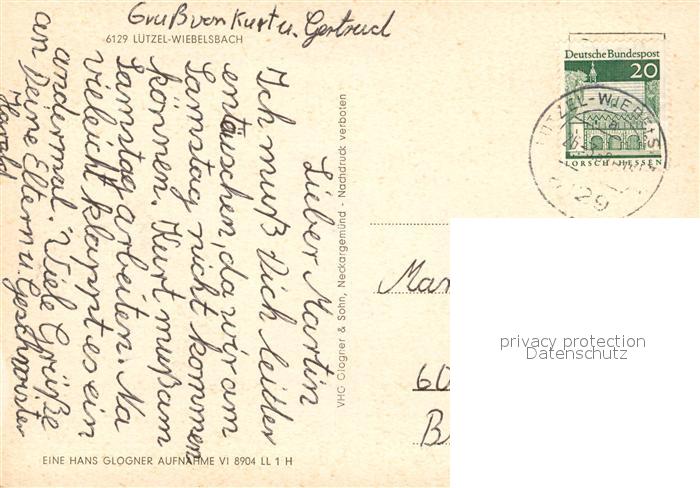 Gruß von Kurt u. Gertrud
6129 LÜTZEL-WIEBELSBACH
Lieber Martin
Ich muß Dich leider
entäuschen, da wir am
Samstag nicht kommen
können. Kurt muß am
Samstag arbeiten. Na
vieleicht klappt es ein
andermal. Viele Grüße
an Deine Eltern u. Geschwister
Harald
VHG Glogner & Sohn, Neckargemünd - Nachdruck verboten
EINE HANS GLOGNER AUFNAHME VI 8904 LL 1 H
Deutsche Bundespost
20
LORSCH/HESSEN
LÜTZEL-WIEBELS
6129
Mar
60
B
privacy protection
Datenschutz